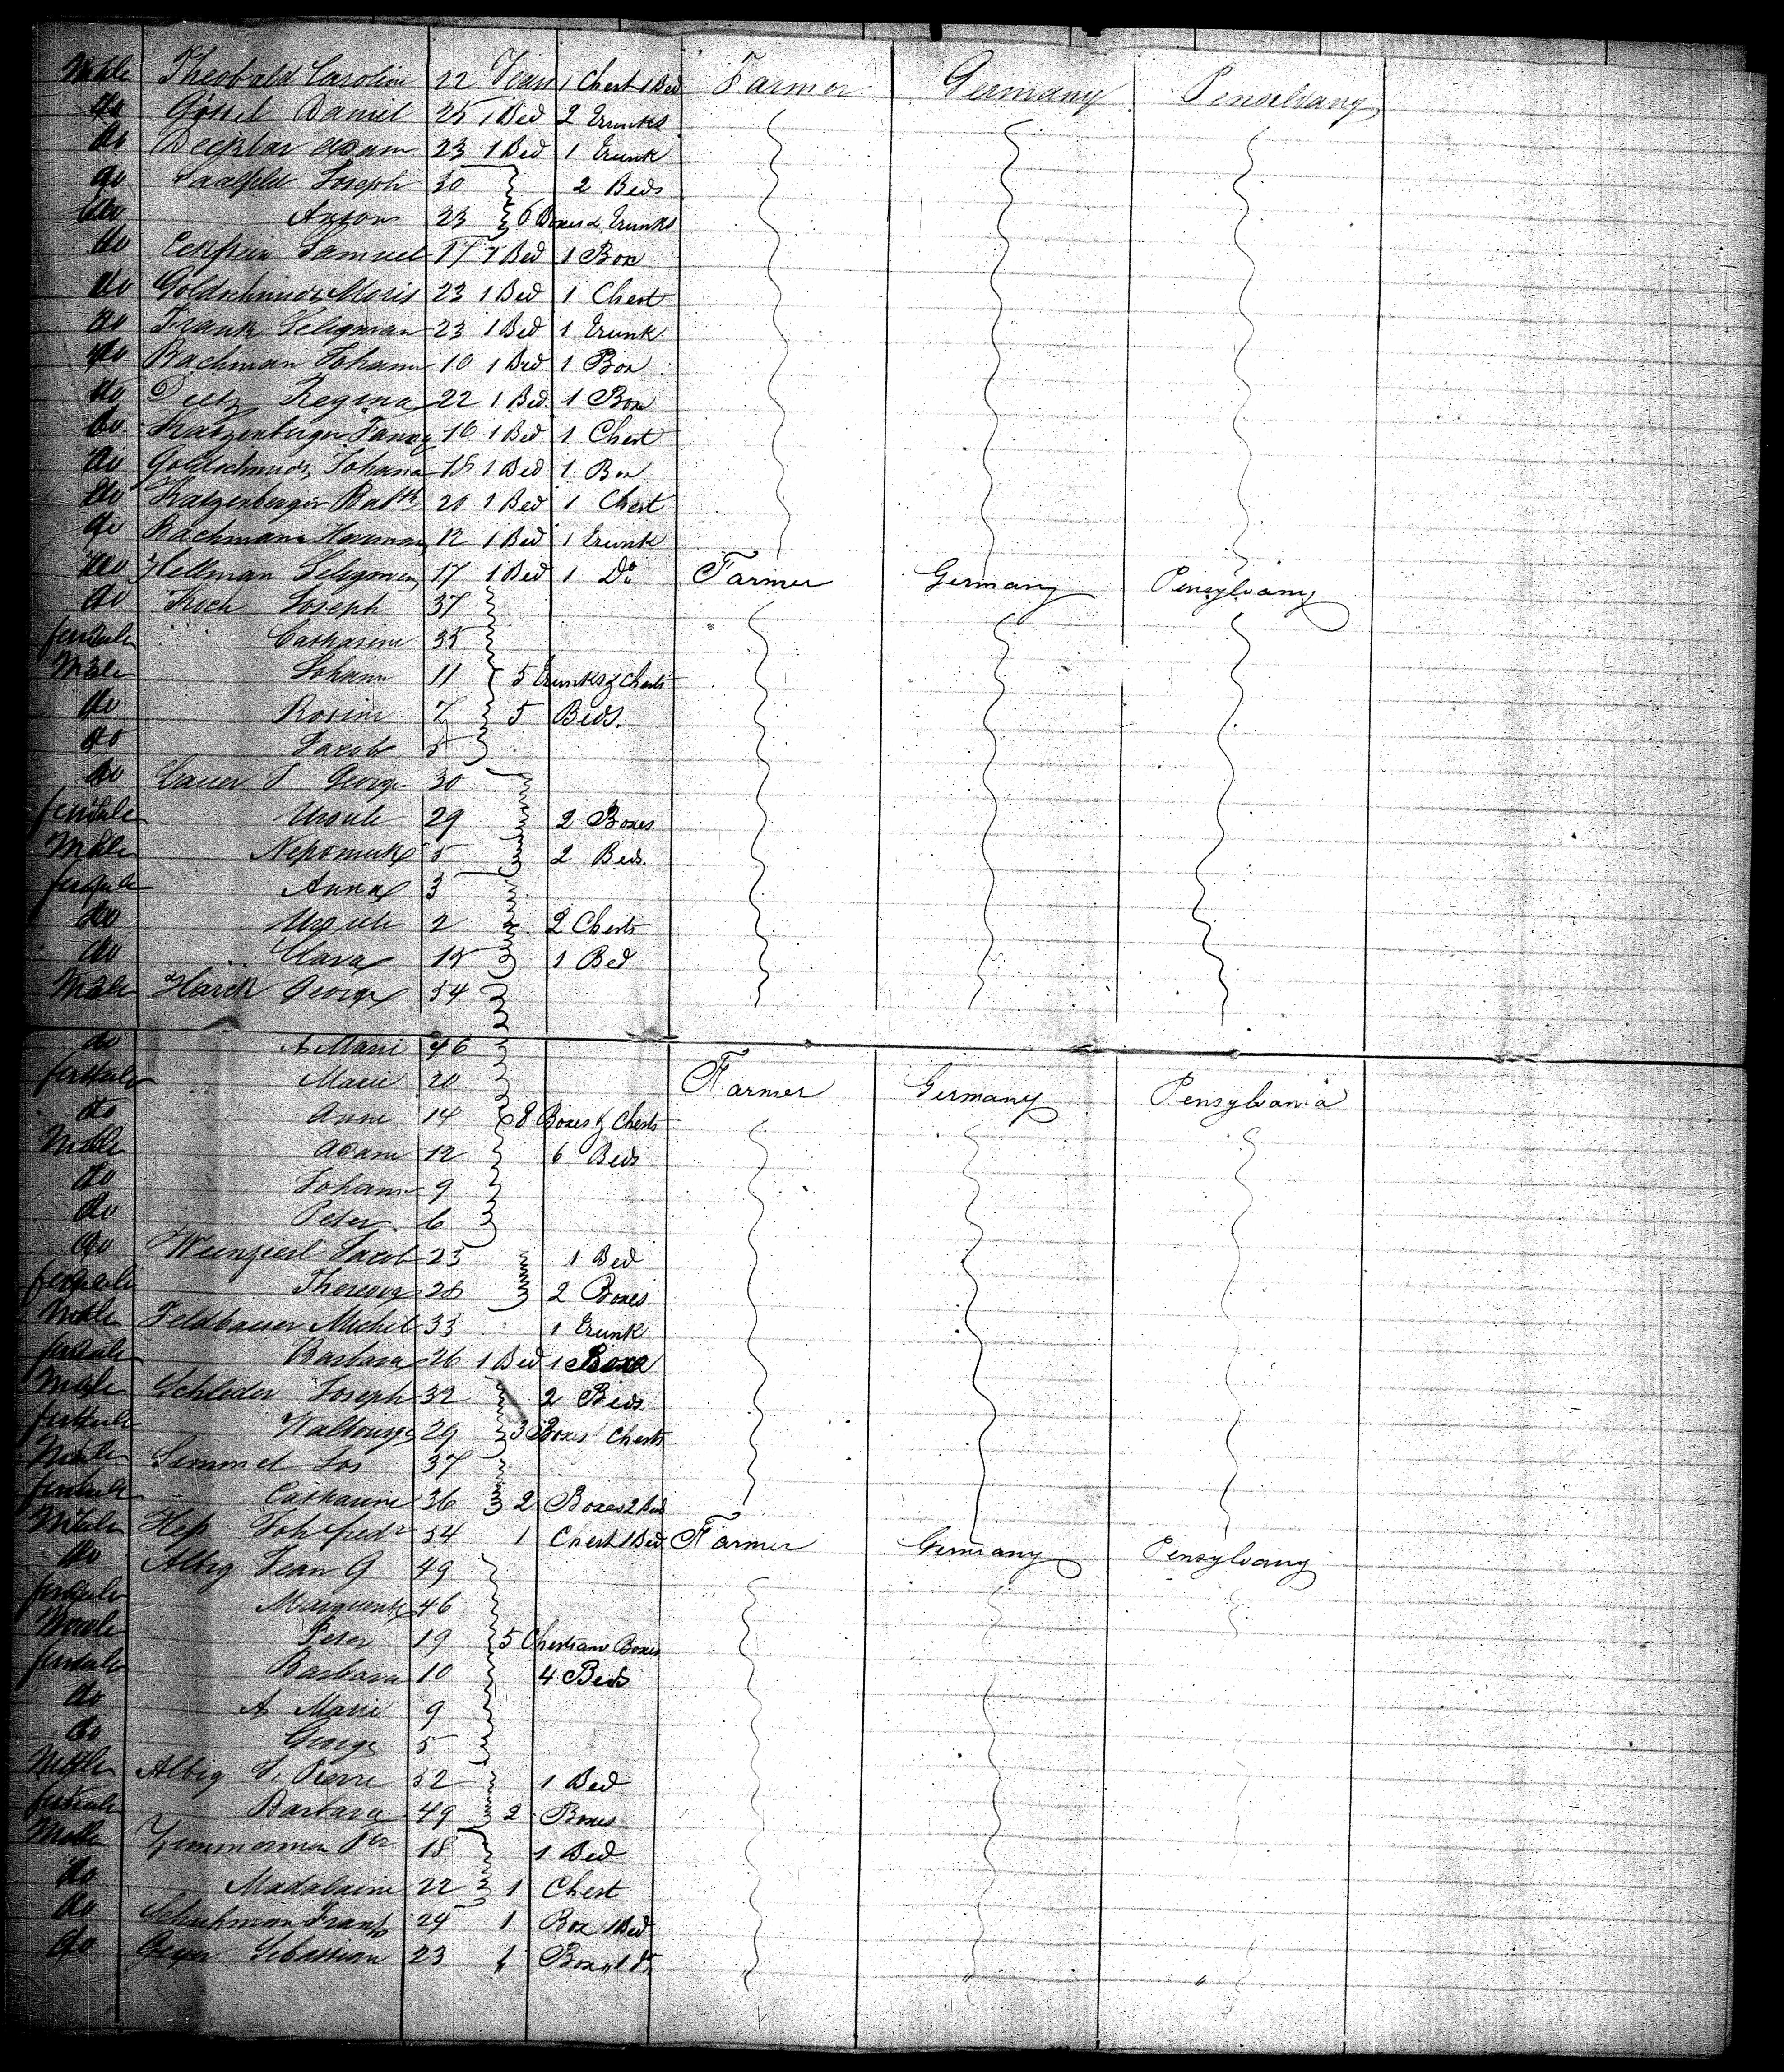 Male Theobald Caroline 22 Years 1 Chest 1 Bed Farmer Germany Penselvany
do Daniel 25 1 Bed 2 Trunks
do Adam 23 1 Bed 1 Trunk
do Saalfeld Joseph 30 2 Beds
do Anton 23 6 Boxes & Trunks
do Samuel 17 1 Bed 1 Box
do Goldschmidt Moris 23 1 Bed 1 Chest
do Frank Seligman 23 1 Bed 1 Trunk
do Bachman Johann 10 1 Bed 1 Box
do Dietz Regina 22 1 Bed 1 Box
do Katzenberger Fanny 16 1 Bed 1 Chest
do Goldschmidt Johana 18 1 Bed 1 Box
do Katzenberger Balth 20 1 Bed 1 Chest
do Bachmann Herman 12 1 Bed 1 Trunk
do Hellman Seligman 17 1 Bed 1 Do Farmer Germany Pensylvany
do Koch Joseph 37
female Catharine 35
Male Johann 11 5 Trunks & Chests
do Rosine 7 5 Beds.
do Jacob 5
do Sauer J George 30
female Ursule 29 2 Boxes
Male Nepomuk 5 2 Beds.
female Anna 3
do Ursule 2 2 Chests
do Clara 15 1 Bed
Male Harck George 54
do A Marie 46
female Marie 20 Farmer Germany Pensylvania
do Anne 14 8 Boxes & Chests
Male Adam 12 6 Beds
do Johann 9
do Peter 6
do Weinzierl Jacob 23 1 Bed
female Theresia 28 2 Boxes
Male Feldbauer Michel 33 1 Trunk
female Barbara 26 1 Bed 1 Box
Male Schleder Joseph 32 2 Beds
female Walburga 29 3 Boxes Chests
Male Simmel Jos 37
female Catharine 36 2 Boxes 2 Beds
Male Hep Joh fredr 54 1 Chest 1 Bed Farmer Germany Pensylvany
do Albig Jean G 49
female Marguerite 46
Male Peter 19 5 Chests and Boxes
female Barbara 10 4 Beds
do A Marie 9
do George 5
Male Albig J. Pierre 52 1 Bed
female Barbara 49 2 Boxes
Male Zimmerman 18 1 Bed
do Madalaine 22 1 Chest
do Schuhman Franz 24 1 Box 1 Bed
do Geyer Sebastian 23 " Box " 1 do " " "